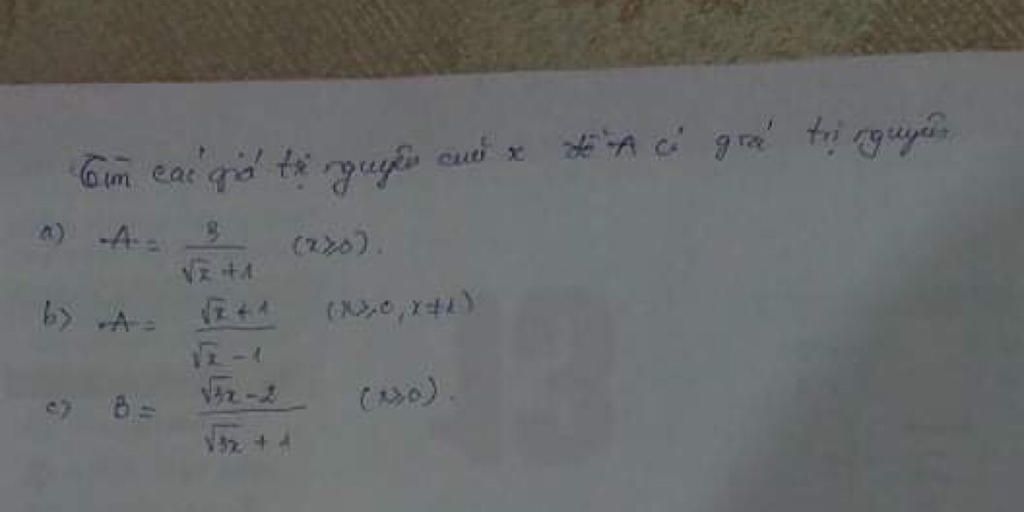 Tìm các giá trị nguyên của x để A có giá trị nguyên
a) A = 3 / (√x + 1) (x ≥ 0).
b) A = (√x + 1) / (√x - 1) (x ≥ 0, x ≠ 1)
c) B = (√3x - 2) / (√3x + 1) (x ≥ 0).